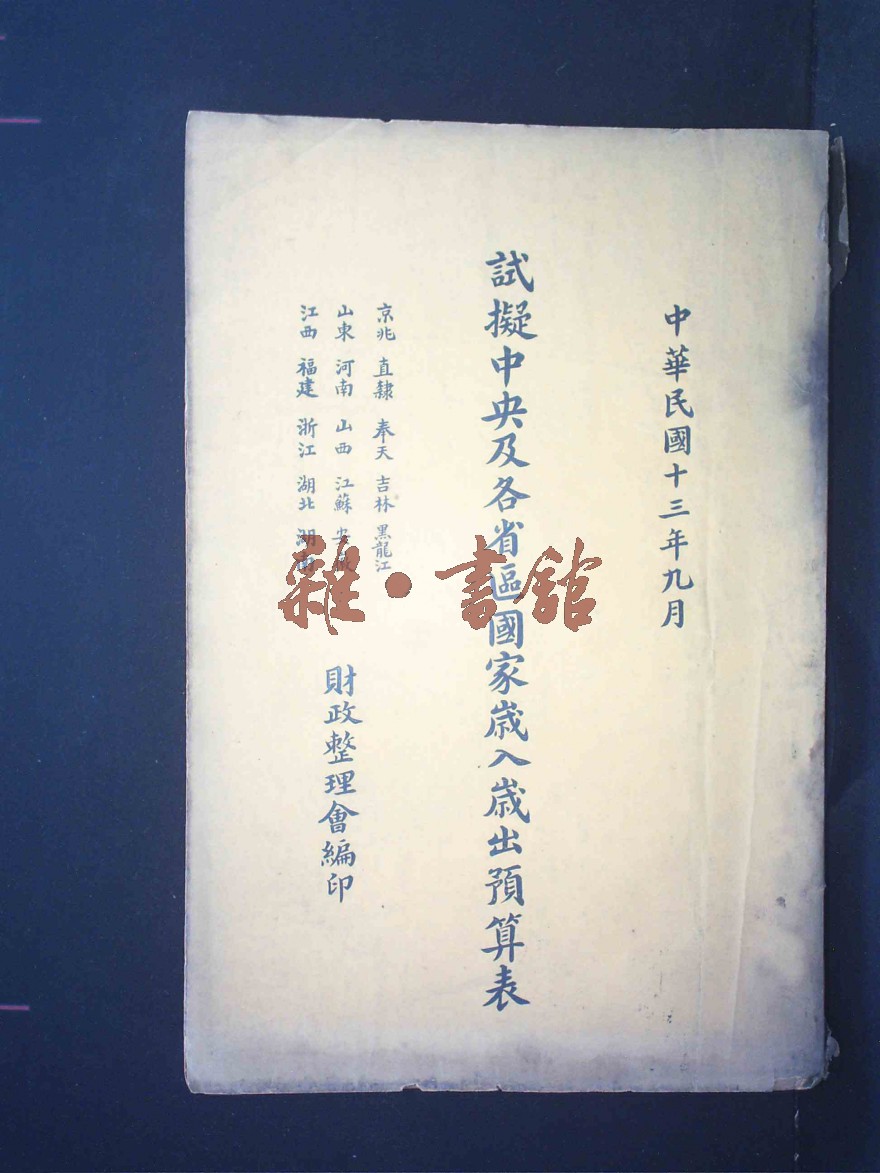 中華民國十三年九月
試擬中央及各省區國家歲入歲出預算表
京兆 直隸 奉天 吉林 黑龍江
山東 河南 山西 江蘇 安徽
江西 福建 浙江 湖北 湖南
財政整理會編印
雜·書館